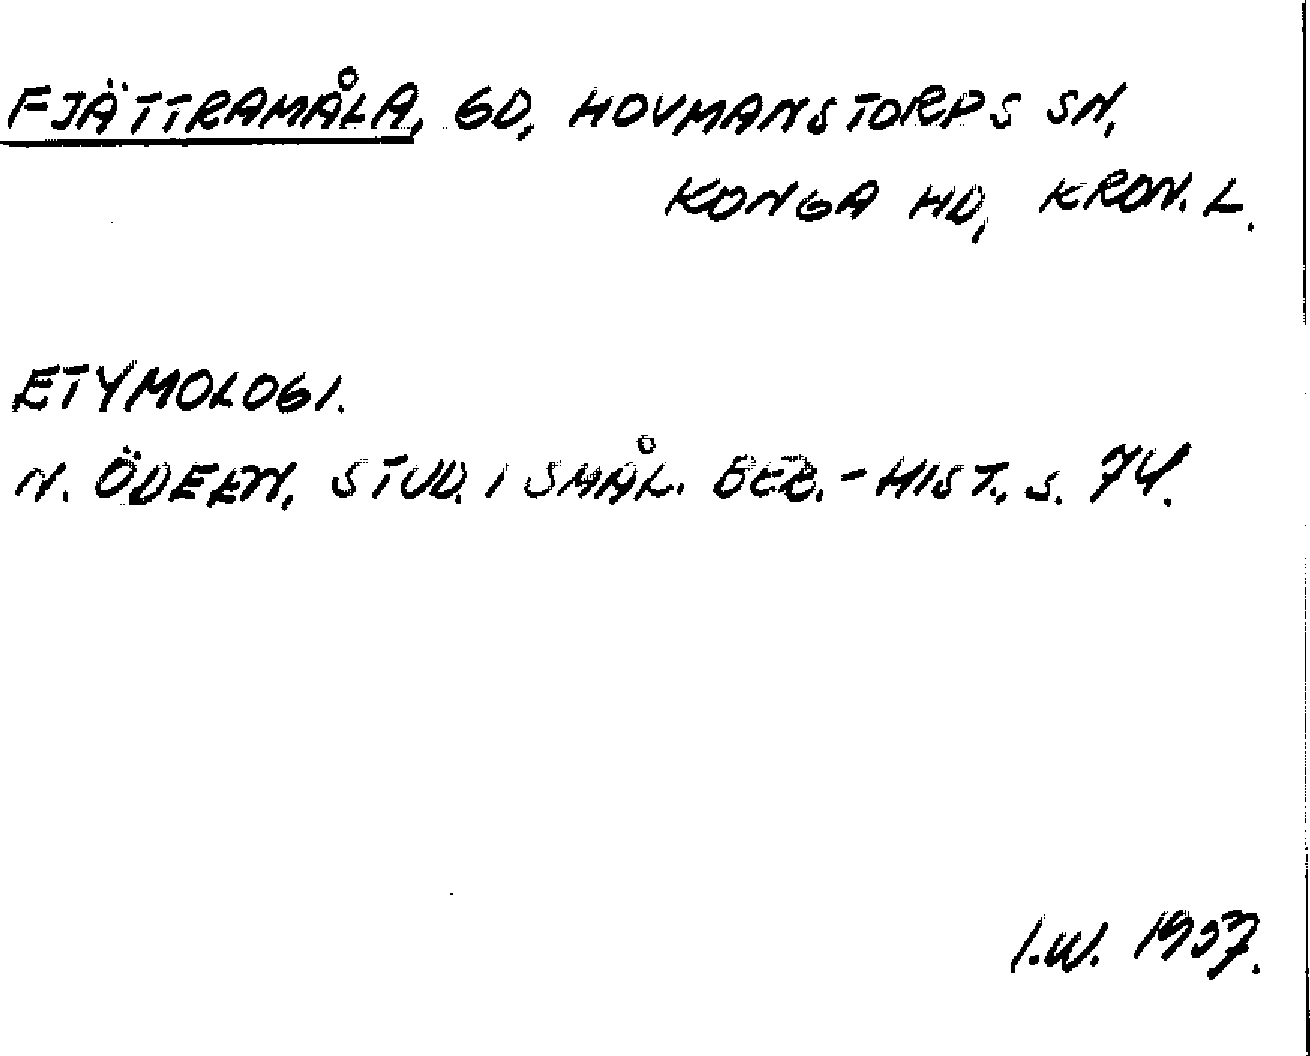 FJÄTTRAMÅLA, GD, HOVMANSTORPS SN,
KONGA HD, KRON. L.
ETYMOLOGI.
N. ÖDEEN, STUD. I SMÅL. BEB.-HIST., S. 74.
I.W. 1957.